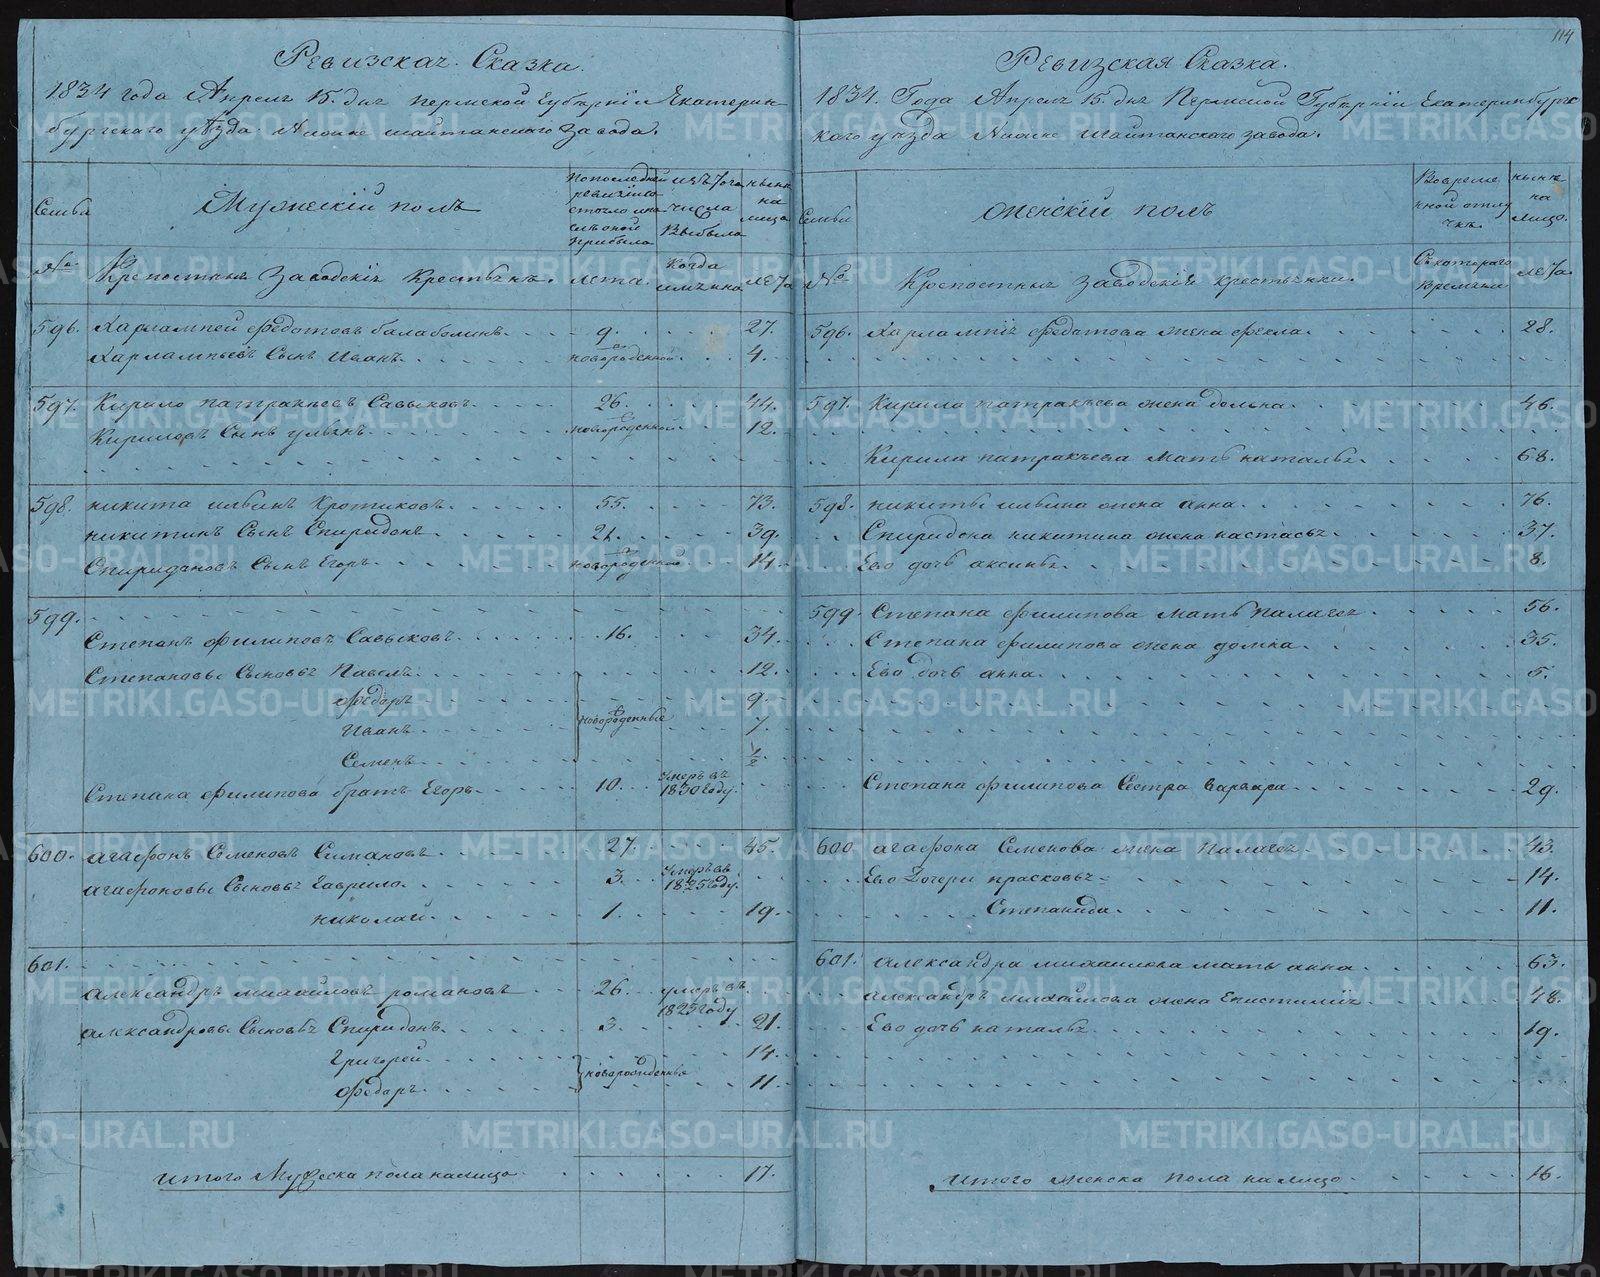 114
Ревизская Сказка.
1834 года Апреля 15. дня Пермской Губерніи Екатерин-
бургскаго уѣзда Нижне шайтанскаго завода.
Семьи
Мужескій полъ
По последней ревизіи состояло и после оной прибыло
изъ того числа Выбыло
ныне на лицо
№
Крепостныя Заводскія Крестьяня.
лета.
Когда имянно
лета
596. Харлампей Федотовъ балаболинъ. 9. 27.
Харлампьевъ Сынъ Иванъ. новорожденной. 4.
597. Кирило патракѣевъ Савыковъ. 26. 44.
Кириловъ Сынъ Ульянъ. новорожденной 12.
598. никита ильинъ Кротиковъ. 55. 73.
никитинъ Сынъ Спиридонъ. 21. 39.
Спиридоновъ Сынъ Егоръ. новорожденной 14.
599.
Степанъ Филиповъ Савыковъ. 16. 34.
Степановы Сыновья Павелъ. 12.
Федаръ 9.
Иванъ новорожденные 7.
Семенъ 1/2
Степана Филипова братъ Егоръ 10. Умеръ въ 1830 Году.
600. агафонъ Семеновъ Симановъ. 27. 45.
агафоновы Сыновья Гаврило. 3. Умеръ въ 1825 Году.
николай. 1. 19.
601.
александръ михайловъ романовъ 26. умеръ въ 1825 году
александровы Сыновья Спиридонъ. 3. 21.
Григорей. 14.
новорожденныя
Федаръ. 11.
итого Мужеска пола налицо. 17.
Ревизская Сказка.
1834. Года Апреля 15. дня Пермской Губерніи Екатеринбургс
каго уѣзда Нижне Шайтанскаго завода.
Семьи
Женскій полъ
Во времянной отлучке
ныне на лицо.
№
Крепостныя Заводскія крестьянки.
Съ котораго времени
лета.
596. Харлампія Федотова жена Фекла. 28.
597. Кирила патракѣева жена 46.
Кирила патракѣева Мать наталья. 68.
598. никиты ильина жена анна. 76.
Спиридона никитина жена настасья. 37.
Ево дочь аксинья. 8.
599. Степана Филипова мать палагея. 56.
Степана филипова жена домна. 35.
Ево дочь анна. 5.
Степана филипова Сестра варвара. 29.
600. агафона Семенова жена палагея. 43.
Ево Дочери прасковья 14.
Степанида. 11.
601. александра михаилова мать анна. 63.
александръ михайлова жена Епистимія 48.
Ево дочь наталья 19.
итого женска пола налицо. 16.
METRIKI.GASO-URAL.RU